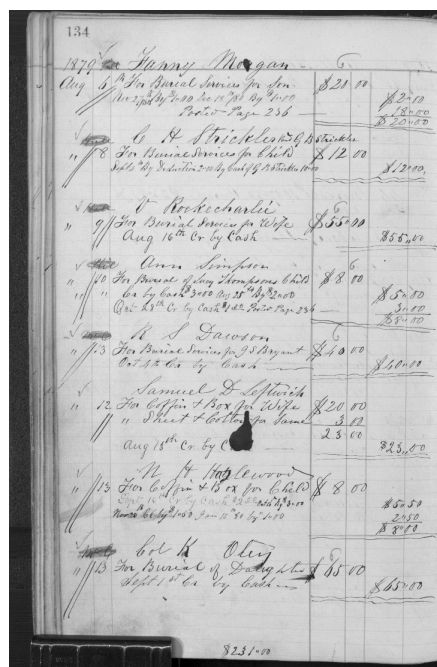 134
1879 Fanny Morgan
Aug 6 For Burial Services for Son $20 00
$2"00
Posted Page 236 18"00
$20"00
C H Strickler G B Strickler
" 8 For Burial Services for Child $12 00
Sept By Deduction 2 00 By Cash of G B Strickler 10 00 $12"00
V Rockecharlie
" 9 For Burial Services for Wife $55"00
Aug 16th Cr by Cash $55"00
Ann Simpson
" 10 For Burial of Lucy Thompsons Child $8 00
" " Cr by Cash $3"00 Aug 25th By $2"00 $5"00
Oct 28th Cr by Cash Posted Page 236 3"00
$8"00
R S Dawson
" 13 For Burial Services for J S Bryant $40 00
Oct 4th Cr by Cash $40"00
Samuel D Leftwich
" 12 For Coffin & Box for Wife $20 00
" Sheet & Cotton for Same 3 00
23 00
Aug 15th Cr by $23"00
N H Hazlewood
" 13 For Coffin & Box for Child $8 00
Cr by Cash $3"00 $5"50
Nov Jan 80 by 1"00 2"50
$8"00
Col K Otey
" 13 For Burial of Daughter $65 00
Sept 1st Cr by Cash $65"00
8231"00